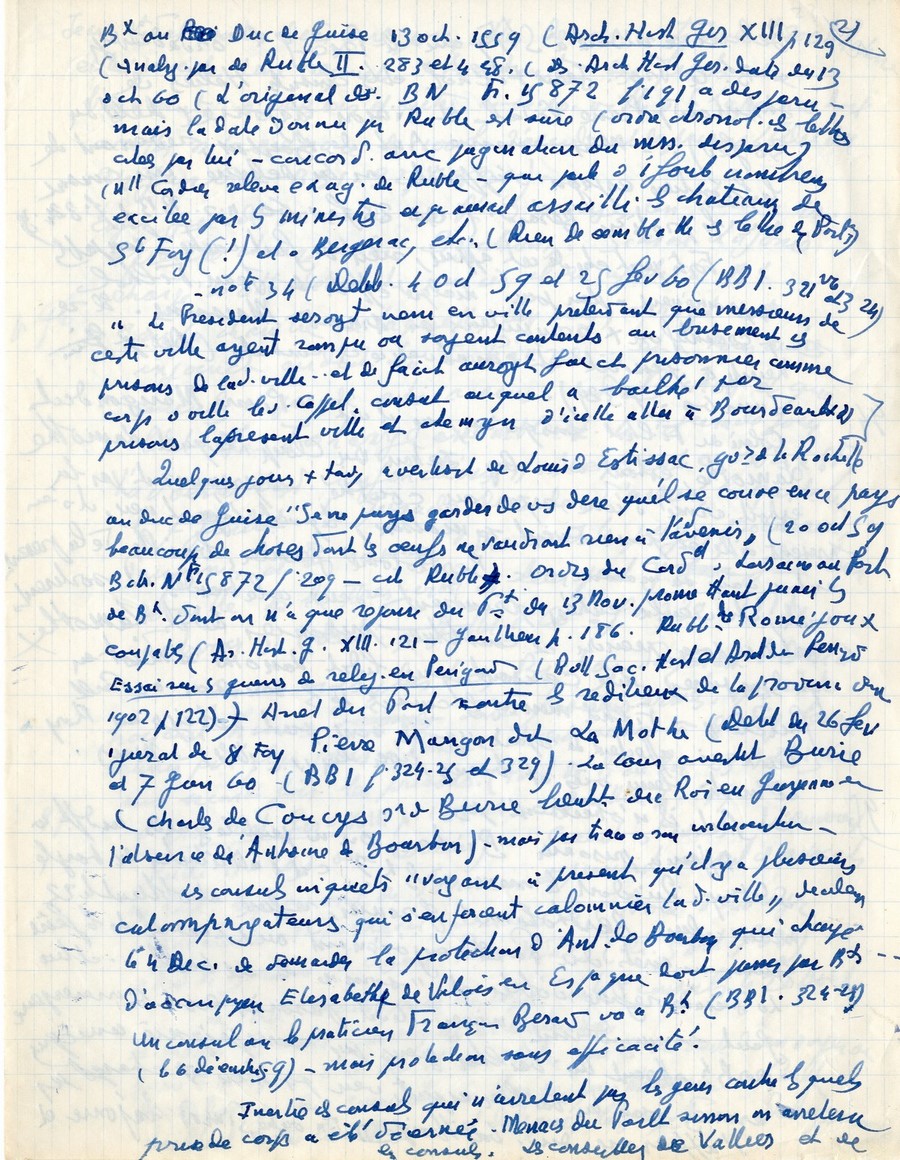 Bx au Duc de Guise 13 oct. 1559 (Arch. Hist Gir XIII p 129 21
(Analys. par de Ruble II. 283 et 448. (ds. Arch Hist Gir. date du 13
oct 60 (L'original ds. BN Fr. 15872 f. 191 a disparu -
mais la date donnée par Ruble est sûre (ordre chronol. des lettres
citées par lui - concord. avec pagination du mss. disparu)
(Mll Cadier relève exag. de Ruble - que parle d'1 foule nombreuse
excitée par les ministres et qui aurait assailli les chateaux de
Ste Foy (!) et à Bergerac, etc. (Rien de semblable ds lettre du Parlt)
- note 34 (Delib. 4 Oct 59 et 25 fev 60 (BB1. 321 vo et 324)
" le President seroyt venu en ville pretendant que messieurs de
ceste ville ayent rompu ou soyent contents au brisement des
prisons de lad. ville .. et de facit auroyt faict prisonnier comme
corps de ville led. Cappel, consul auquel a bailhé par
prisons la present ville et chemyn d'icelle aller à Bourdeaulx »
Quelques jours + tard, avertisst de Louis d'Estissac, gouvr de la Rochelle
au duc de Guise "Je ne puys garder de vs dire qu'il se couve en ce pays
beaucoup de choses dont les oeufs ne vaudront rien à l'avenir" (20 oct 59
Bib. N Fr 15872 f. 209 - cité Ruble. ordres du Cardl de Lorraine au Parlt
de Bx. dont on n'a que reponse du Pt du 13 Nov. promettant punir les
coupables (Ar. Hist. G. XIII. 121 - Gaullieur p. 186. Ruble de Romejoux
Essai sur les guerres de relig. en Perigord (Bull Soc. Hist et Arch du Perigd
1902 p 122)) Arret du Parlt contre les seditieux de la province
1 jurat de Ste Foy Pierre Mangon dit La Mothe (Delib du 26 fev
et 7 Juin 60 (BB1 f. 324-25 et 329). La cour avertit Burie
(Charles de Coucys sr de Burie lieutt du Roi en Guyenne en
l'absence de Antoine de Bourbon) - mais pas trace son intervention -
Les consuls inquiets "voyant à présent qu'il y a plusieurs
calompniateurs qui s'enforcent calomnier lad. ville", decident
le 4 Dec. de demander la protection d'Ant. de Bourbon qui chargé
d'accompagner Elisabeth de Valois en Espagne doit passer par Bx
Un consul ou le praticien François Berard va à Bx (BB1. 324-25)
(6 décembre 59) - mais protection sans efficacité.
Inertie des consuls qui n'arretent pas les gens contre lesquels
prise de corps a été décernée. Menaces du Parlt sinon on arretera
les consuls. Les conseillers de Vallées et de